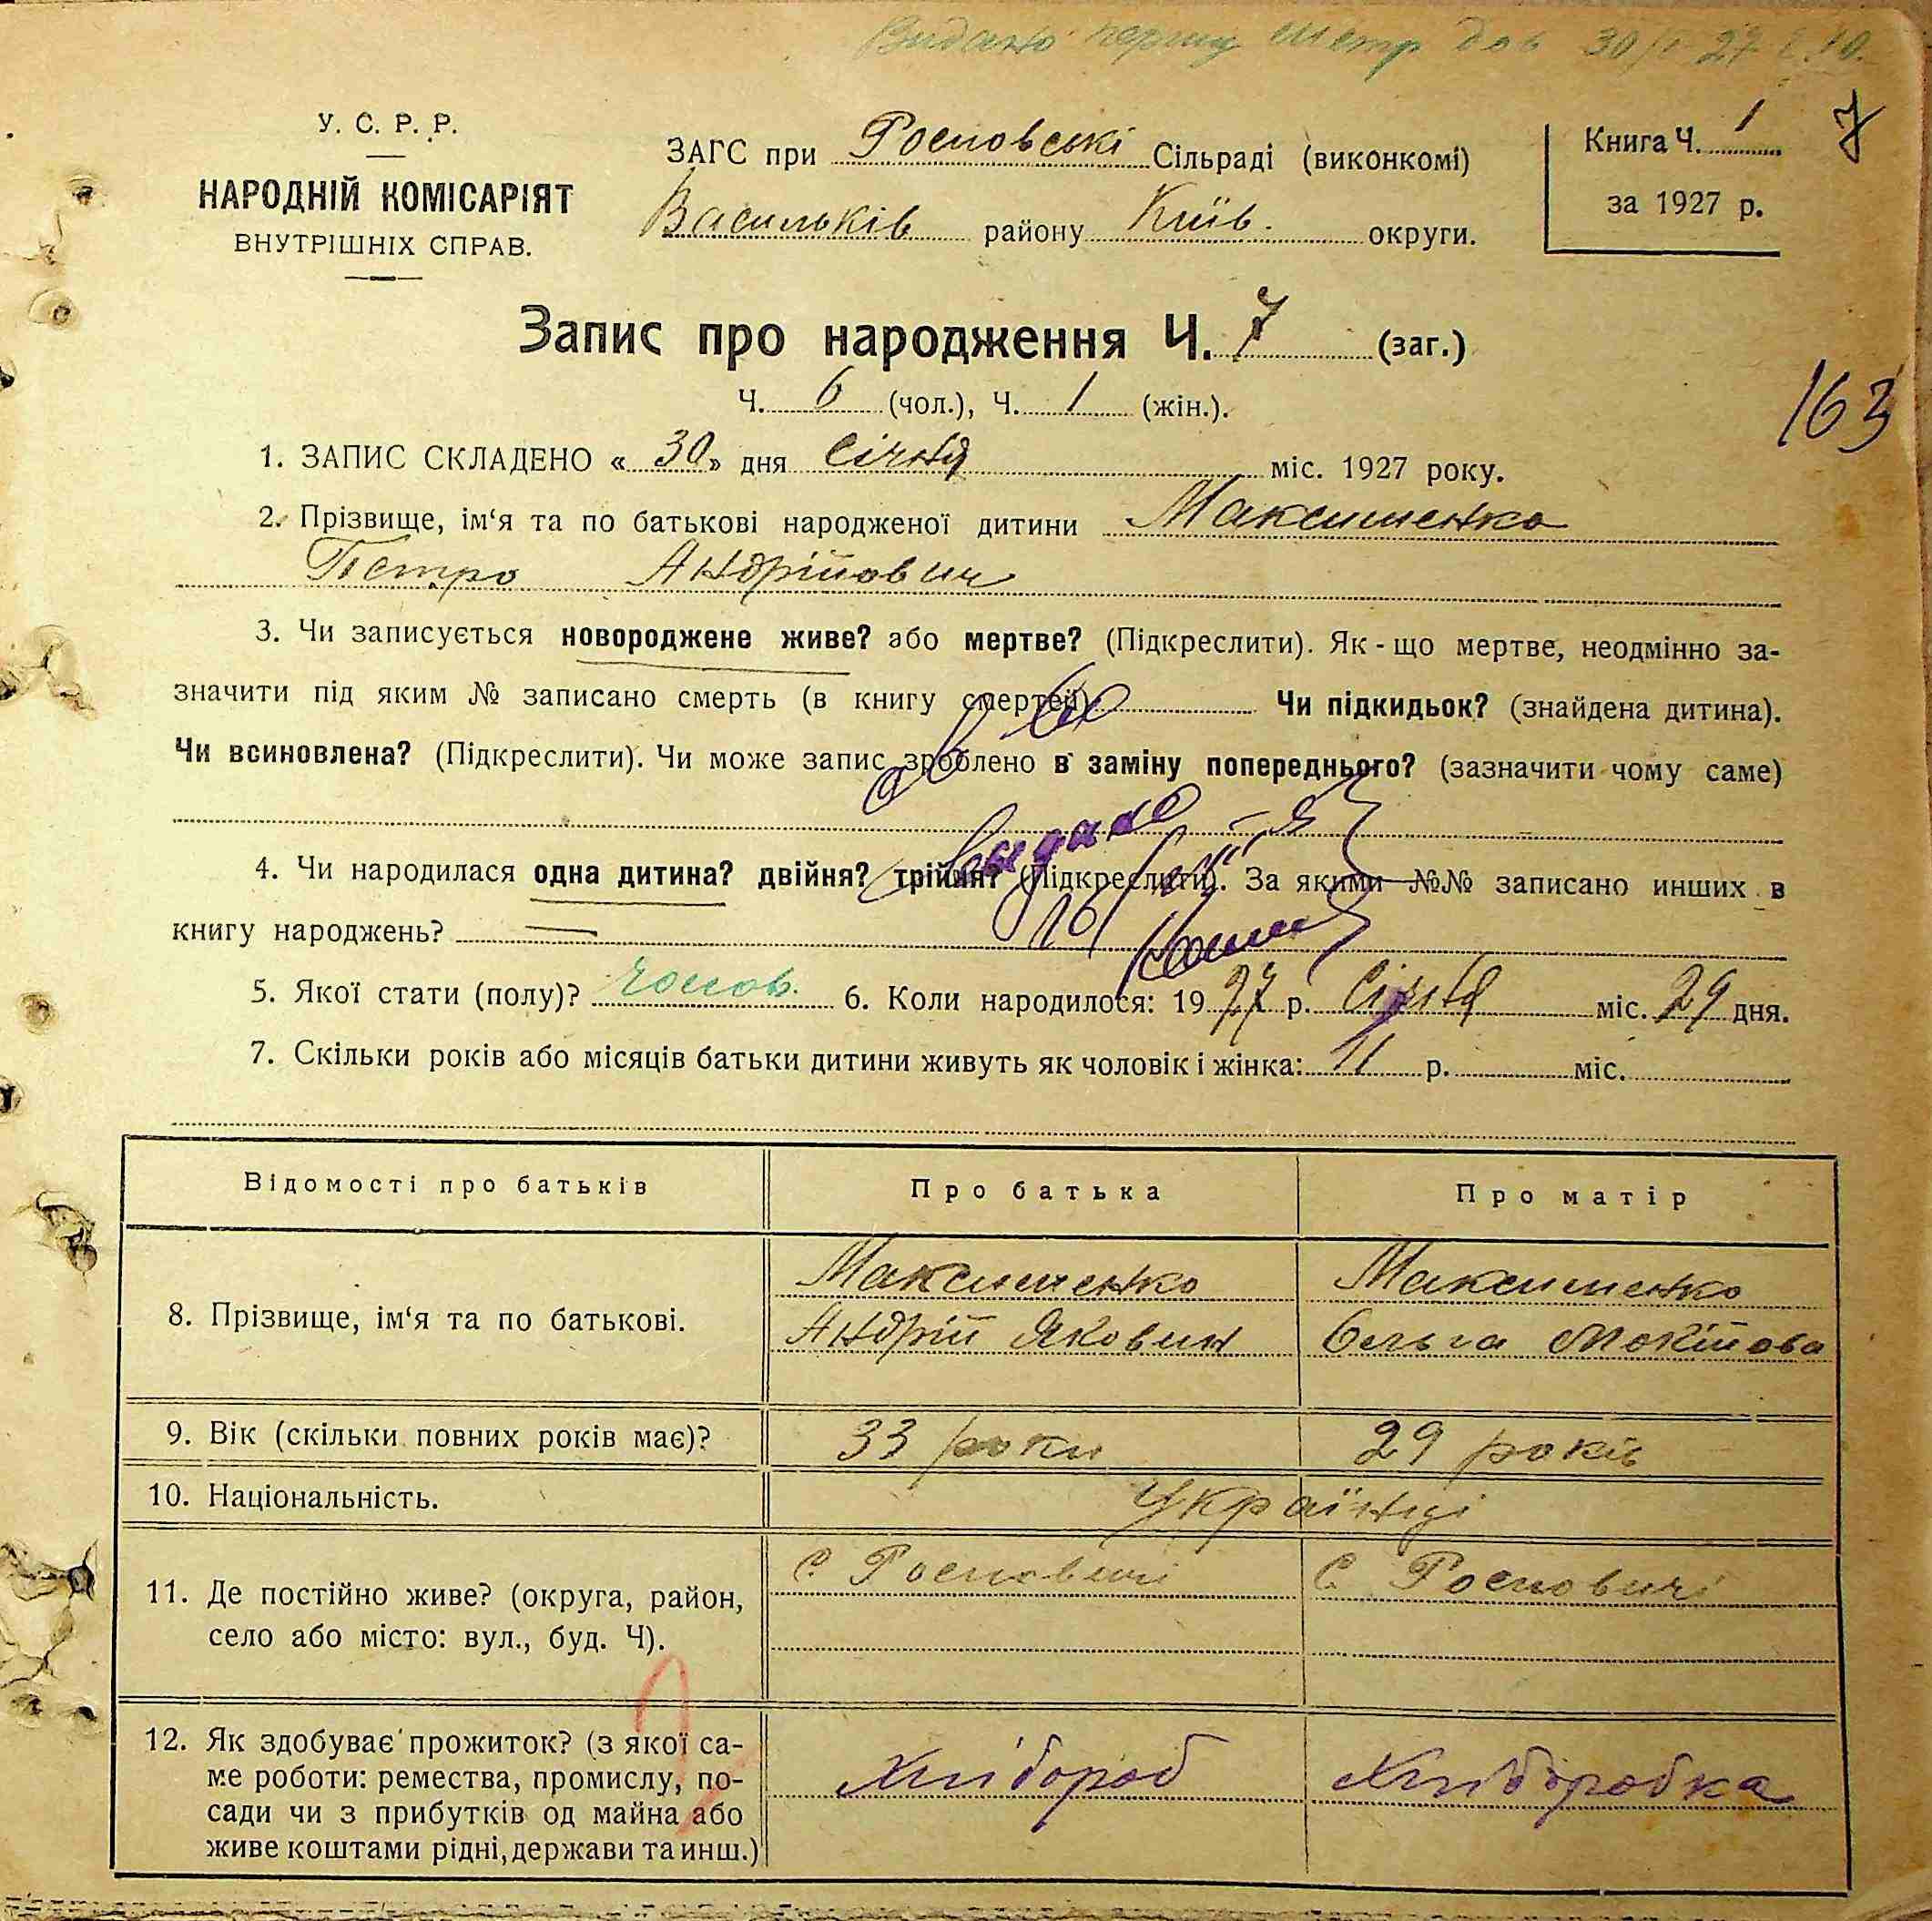 Видано першу метр дов 30/I 27 р.
У. С. Р. Р.
НАРОДНІЙ КОМІСАРІЯТ
ВНУТРІШНІХ СПРАВ.
ЗАГС при Рословські Сільраді (виконкомі)
Васильків району Київ. округи.
Книга Ч. 1
за 1927 р.
7
Запис про народження Ч. 7 (заг.)
Ч. 6 (чол.), Ч. 1 (жін.).
163
1. ЗАПИС СКЛАДЕНО « 30 » дня Січня міс. 1927 року.
2. Прізвище, ім‘я та по батькові народженої дитини Максименко
Петро Андрійович
3. Чи записується новороджене живе? або мертве? (Підкреслити). Як-що мертве, неодмінно за-
значити під яким № записано смерть (в книгу смертей) Чи підкидьок? (знайдена дитина).
Чи всиновлена? (Підкреслити). Чи може запис зроблено в заміну попереднього? (зазначити чому саме)
видано
4. Чи народилася одна дитина? двійня? трійня? (Підкреслити). За якими №№ записано инших в
книгу народжень? —
5. Якої стати (полу)? чолов. 6. Коли народилося: 1927 р. Січня міс. 29 дня.
7. Скільки років або місяців батьки дитини живуть як чоловік і жінка: 11 р. міс.
Відомості про батьків Про батька Про матір
8. Прізвище, ім‘я та по батькові.
Максименко
Андрій Якович
Максименко
Ольга Мокійова
9. Вік (скільки повних років має)? 33 роки 29 років
10. Національність. Українці
11. Де постійно живе? (округа, район,
село або місто: вул., буд. Ч).
С. Рословичі
С. Рословичі
12. Як здобуває прожиток? (з якої са-
ме роботи: ремества, промислу, по-
сади чи з прибутків од майна або
живе коштами рідні, держави та инш.)
Хлібороб
Хліборобка